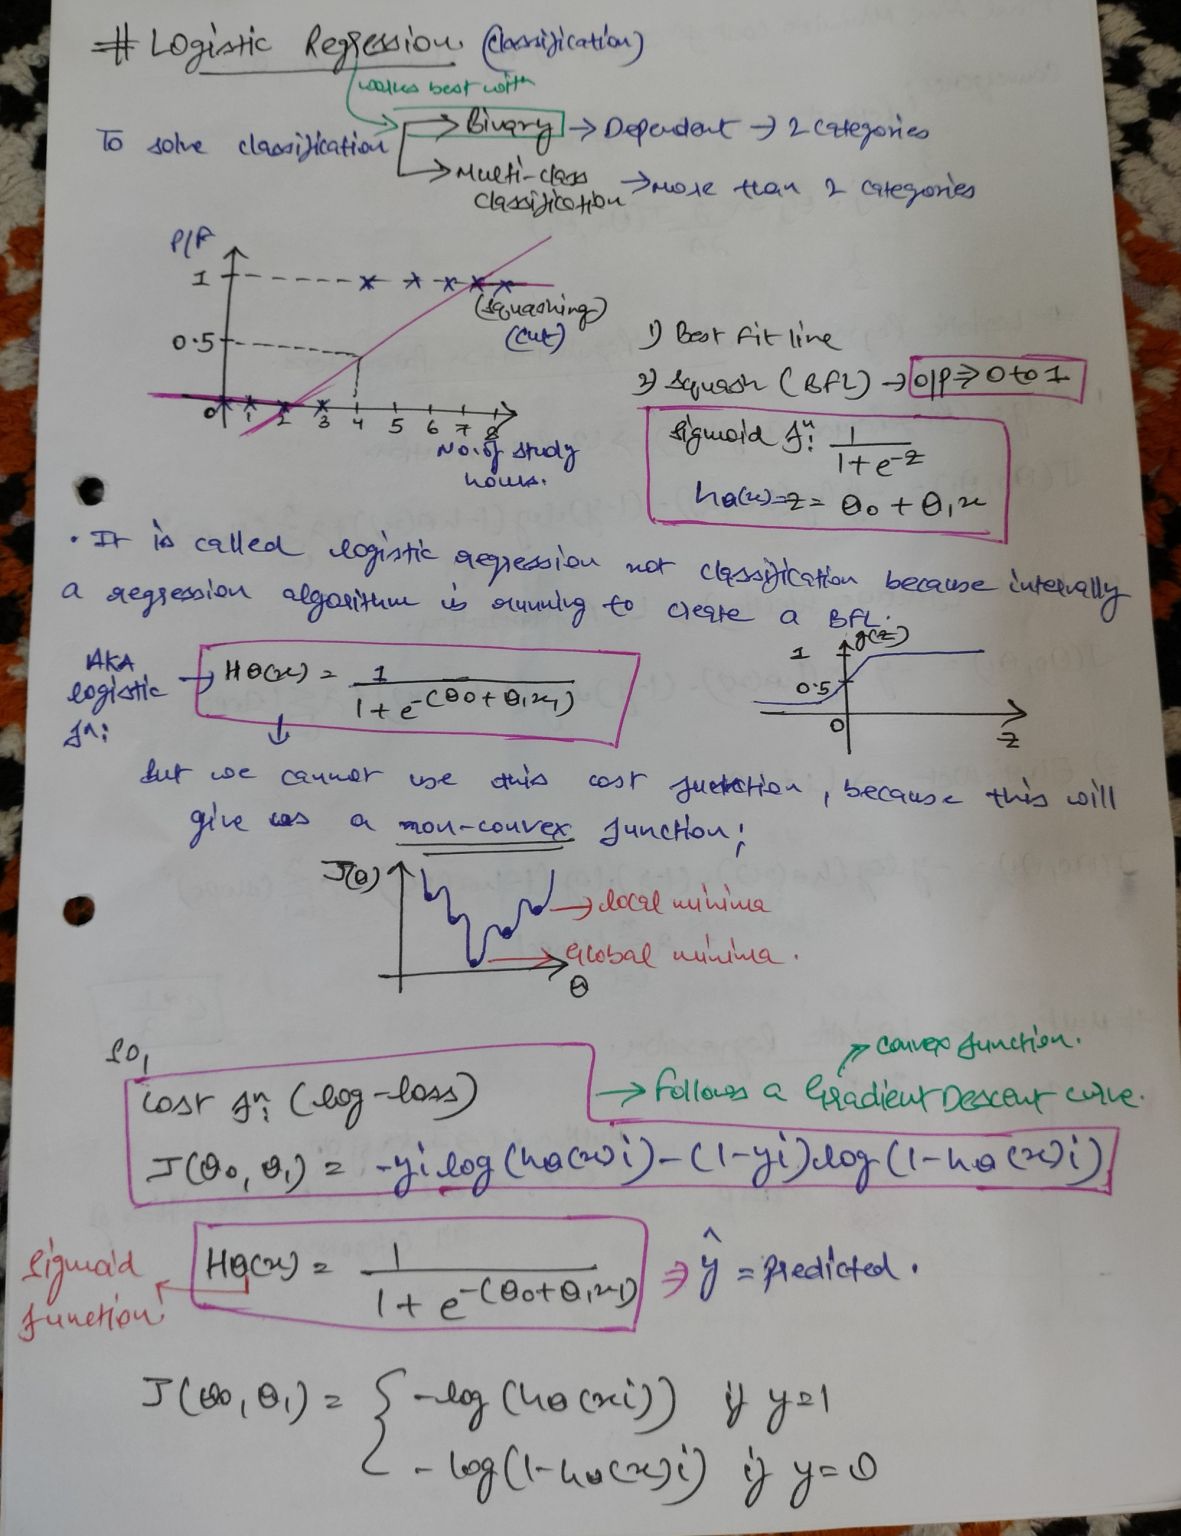 # Logistic Regression (Classification)
works best with
To solve classification → Binary → Dependent → 2 categories
→ Multi-class classification → more than 2 categories
P/F
1
(Squashing)
(cut)
0.5
0 1 2 3 4 5 6 7 8
No. of study
hours.
1) Best Fit line
2) Squash (BFL) → O/P ⇒ 0 to 1
Sigmoid fⁿ: 1/(1+e^-z)
hθ(x) = z = θ0 + θ1x
• It is called logistic regression not classification because internally
a regression algorithm is running to create a BFL.
AKA
logistic
fn:
→ Hθ(x) = 1/(1+e^-(θ0+θ1x1))
g(z)
1
0.5
0
z
But we cannot use this cost function, because this will
give us a non-convex function;
J(θ)
→ local minima
→ Global minima.
θ
So,
→ convex function.
cost fⁿ: (log-loss)
→ Follows a Gradient Descent curve.
J(θ0, θ1) = -yi log(hθ(x)i) - (1-yi) log(1-hθ(x)i)
Sigmoid
function
Hθ(x) = 1/(1+e^-(θ0+θ1x1)) ⇒ ŷ = predicted.
J(θ0, θ1) = { -log(hθ(xi)) if y=1
-log(1-hθ(x)i) if y=0